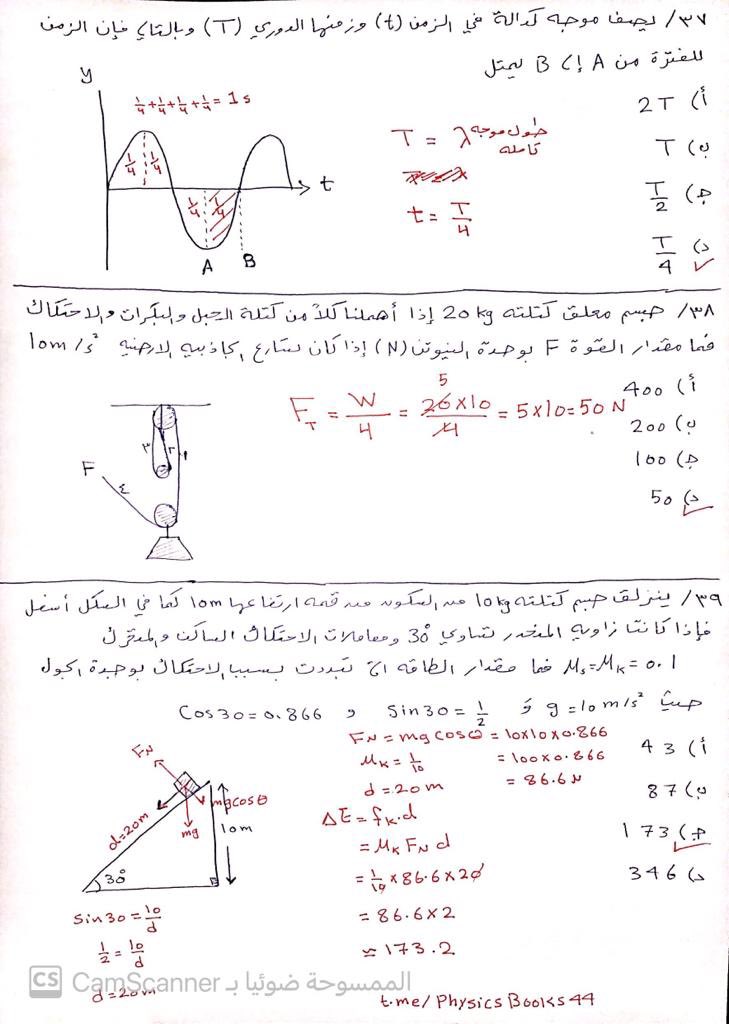 ٣٧/ يصف موجه كدالة في الزمن (t) وزمنها الدوري (T) وبالتالي فإن الزمن
للفترة من A إلى B يمثل
أ) 2T
ب) T
ج) T/2
د) T/4
y
1/4 + 1/4 + 1/4 + 1/4 = 1 s
1/4 1/4
1/4 1/4
t
A B
T = λ طول موجه كامله
t = T/4
٣٨/ جسم معلق كتلته 20 kg إذا أهملنا كلاً من كتلة الحبل والبكرات والاحتكاك
فما مقدار القوة F بوحدة النيوتن (N) إذا كان تسارع الجاذبيه الارضيه 10m/s²
أ) 400
ب) 200
ج) 100
د) 50
F_T = W/4 = 20x10/4 = 5x10 = 50 N
5
F
١
٢
٣
٤
٣٩/ ينزلق جسم كتلته 10kg من السكون من قمه ارتفاعها 10m كما في الشكل أسفل
فإذا كانت زاويه المنحدر تساوي 30° ومعاملات الاحتكاك الساكن والمتحرك
μs=μk=0.1 فما مقدار الطاقه التي تبددت بسبب الاحتكاك بوحدة الجول
حيث g=10m/s² و Sin30=1/2 و Cos30=0.866
أ) 43
ب) 87
ج) 173
د) 346
FN = mg cosθ = 10x10x0.866
= 100x0.866
= 86.6 N
μk = 1/10
d = 20m
ΔE = fk.d
= μk FN d
= 1/10 x 86.6 x 20
= 86.6 x 2
≈ 173.2
FN
mgcosθ
mg
d=20m
10m
30°
Sin30 = 10/d
1/2 = 10/d
d = 20m
CS CamScanner الممسوحة ضوئيا بـ
t.me/PhysicsBooks44